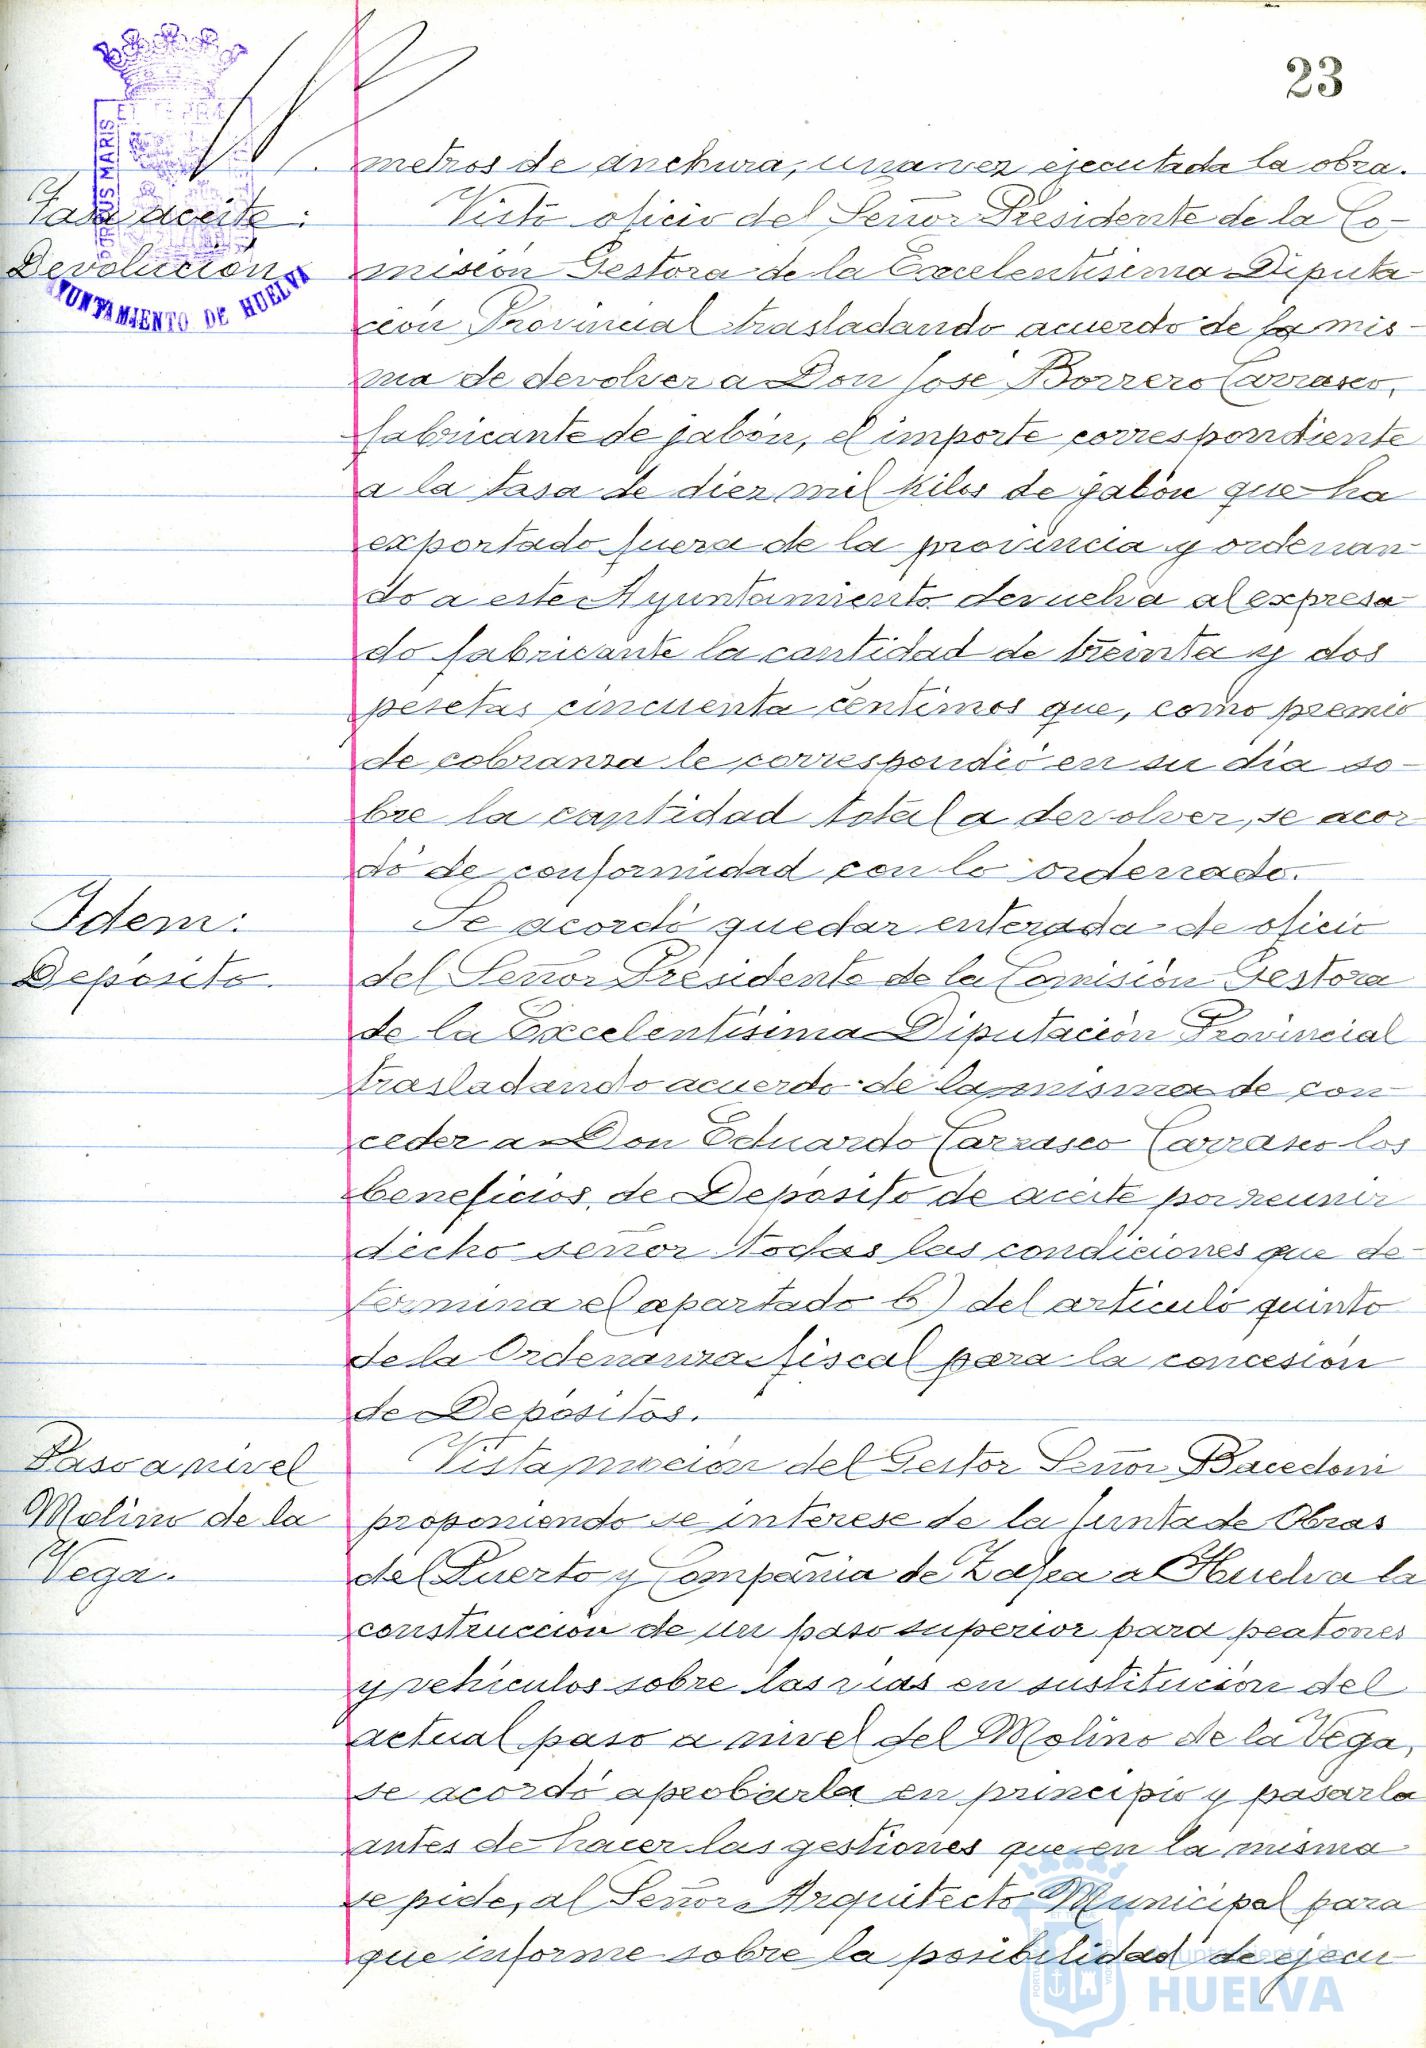 23
ET TERRAE
PORTUS MARIS
AYUNTAMIENTO DE HUELVA
metros de anchura, una vez ejecutada la obra.
Tasa aceite:
Devolución
Visto oficio del Señor Presidente de la Co-
misión Gestora de la Excelentísima Diputa-
ción Provincial trasladando acuerdo de la mis-
ma de devolver a Don José Borrero Carrasco,
fabricante de jabón, el importe correspondiente
a la tasa de diez mil kilos de jabón que ha
exportado fuera de la provincia y ordenan-
do a este Ayuntamiento devuelva al expresa-
do fabricante la cantidad de treinta y dos
pesetas cincuenta centimos que, como premio
de cobranza le correspondió en su día so-
bre la cantidad total a devolver, se acor-
dó de conformidad con lo ordenado.
Idem:
Depósito.
Se acordó quedar enterada de oficio
del Señor Presidente de la Comisión Gestora
de la Excelentísima Diputación Provincial
trasladando acuerdo de la misma de con-
ceder a Don Eduardo Carrasco Carrasco los
beneficios de Depósito de aceite por reunir
dicho señor todas las condiciones que de-
termina el apartado b) del artículo quinto
de la Ordenanza fiscal para la concesión
de Depósitos.
Paso a nivel
Molino de la
Vega.
Vista moción del Gestor Señor Bacedoni
proponiendo se interese de la Junta de Obras
del Puerto y Compañia de Zafra a Huelva la
construcción de un paso superior para peatones
y vehículos sobre las vías en sustitución del
actual paso a nivel del Molino de la Vega,
se acordó aprobarla en principio y pasarla
antes de hacer las gestiones que en la misma
se pide, al Señor Arquitecto Municipal para
que informe sobre la posibilidad de ejecu-
Ayuntamiento de
HUELVA